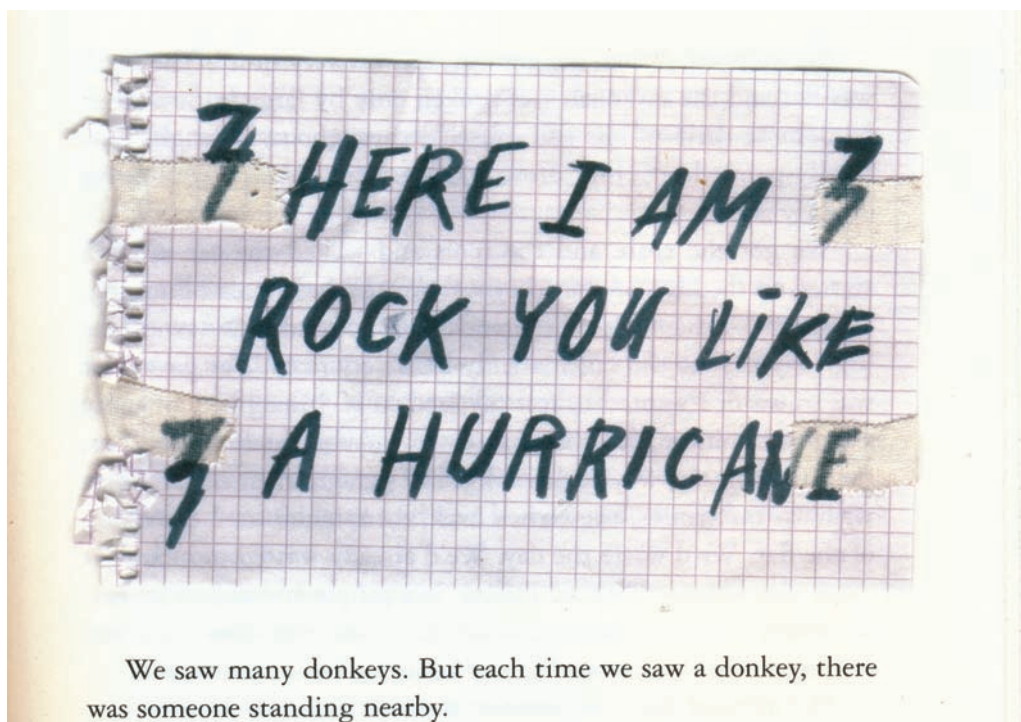 HERE I AM
ROCK YOU LiKE
A HURRICANE
We saw many donkeys. But each time we saw a donkey, there
was someone standing nearby.